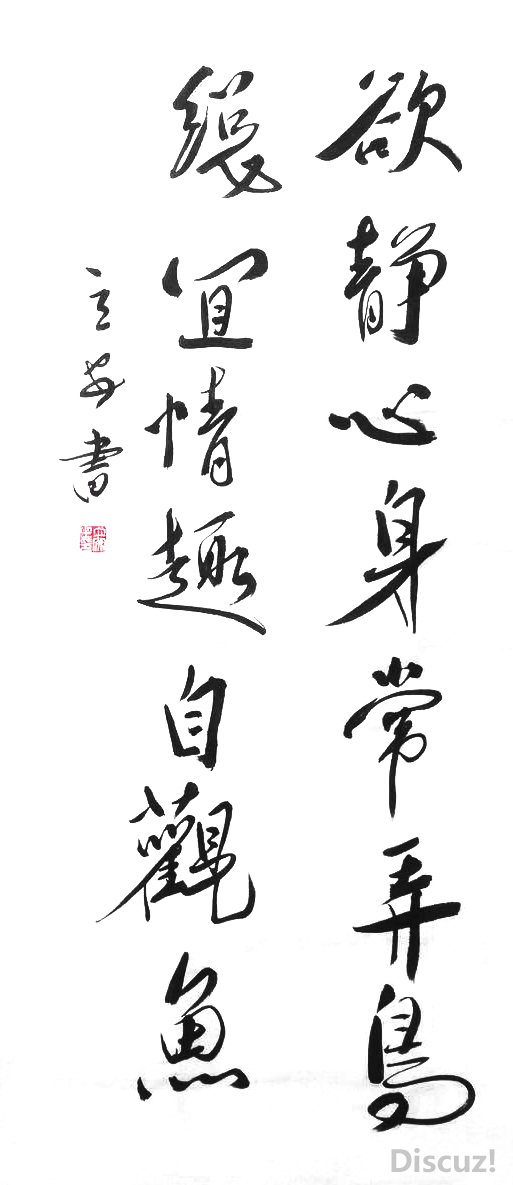 欲静心身常弄鳥
緩宜情趣自觀魚
立安書
Discuz!